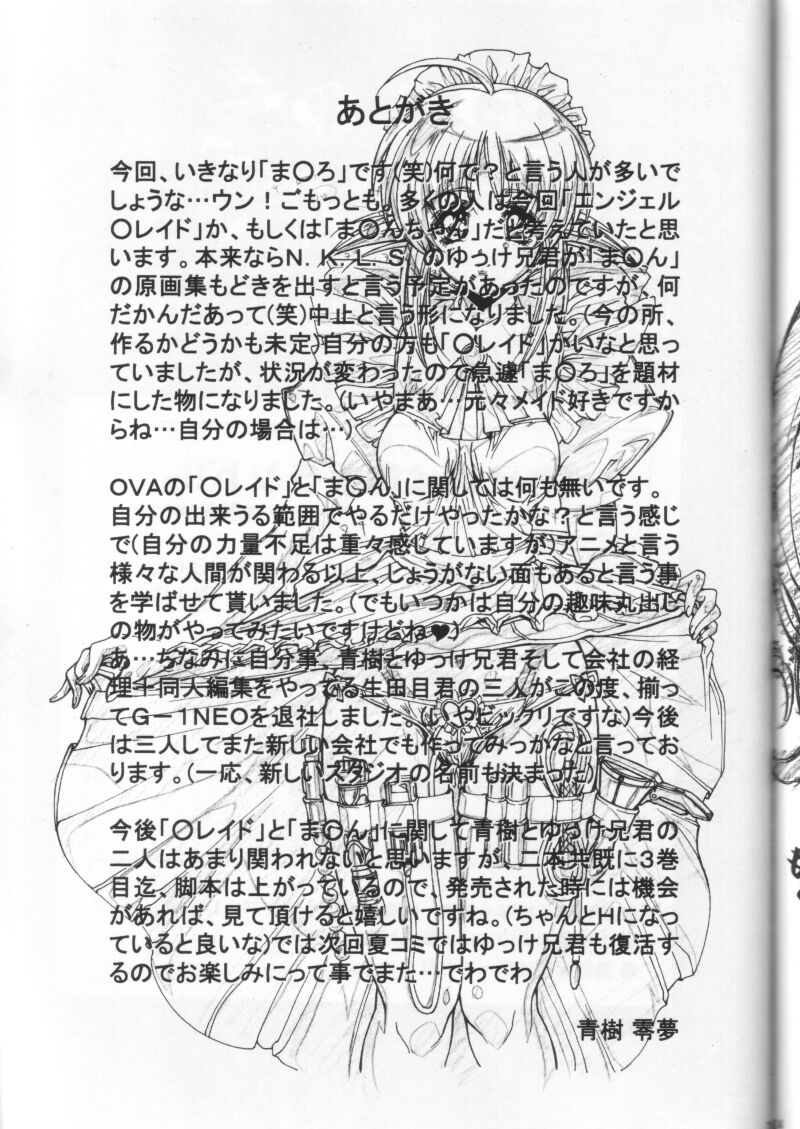 あとがき
今回、いきなり「ま〇ろ」です(笑)何で？と言う人が多いで
しょうな…ウン！ごもっとも。多くの人は今回「エンジェル
〇レイド」か、もしくは「ま〇んちゃん」だと考えていたと思
います。本来ならN．K．L．S．のゆっけ兄君が「ま〇ん」
の原画集もどきを出すと言う予定があったのですが、何
だかんだあって(笑)中止と言う形になりました。(今の所、
作るかどうかも未定)自分の方も「〇レイド」かいなと思っ
ていましたが、状況が変わったので急遽「ま〇ろ」を題材
にした物になりました。(いやまあ…元々メイド好きですか
らね…自分の場合は…)
OVAの「〇レイド」と「ま〇ん」に関しては何も無いです。
自分の出来うる範囲でやるだけやったかな？と言う感じ
で(自分の力量不足は重々感じていますが)アニメと言う
様々な人間が関わる以上、しょうがない面もあると言う事
を学ばせて貰いました。(でもいつかは自分の趣味丸出し
の物がやってみたいですけどね♥)
あ…ちなみに自分事、青樹とゆっけ兄君そして会社の経
理士同人編集をやってる生田目君の三人がこの度、揃っ
てG－1NEOを退社しました。(いやビックリですな)今後
は三人してまた新しい会社でも作ってみっかなと言ってお
ります。(一応、新しいスタジオの名前も決まった)
今後「〇レイド」と「ま〇ん」に関して青樹とゆっけ兄君の
二人はあまり関われないと思いますが、二本共既に3巻
目迄、脚本は上がっているので、発売された時には機会
があれば、見て頂けると嬉しいですね。(ちゃんとHになっ
ていると良いな)では次回夏コミではゆっけ兄君も復活す
るのでお楽しみにって事でまた…でわでわ
青樹 零夢